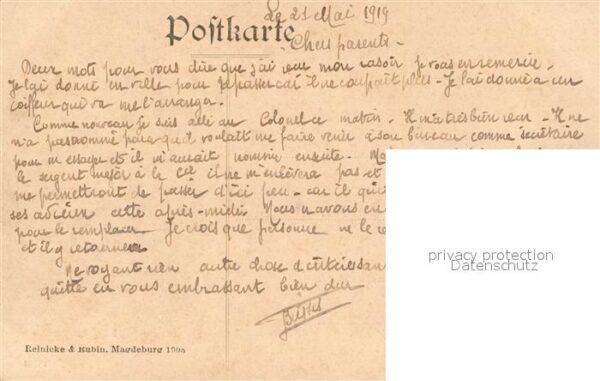 Le 21 Mai 1919
Postkarte
Chers parents -
Deux mots pour vous dire que j'ai reçu mon rasoir je vous en remercie -
Je l'ai donné en ville pour repasser car il ne coupait plus - Je l'ai donné à un
coiffeur qui va me l'arranger.
Comme nouveau je suis allé au Colonel ce matin - Il m'a très bien reçu - Il ne
m'a pas nommé parce qu'il voulait me faire venir à son bureau comme secrétaire
pour m'essayer et il m'aurait nommé ensuite.
le sergent major à la Cie il ne m'enlèvera pas et
me permettront de passer d'ici peu - car il
ses adieu cette après-midi Nous n'avons en
pour le remplacer Je crois que personne ne le
et il y retournera
Ne voyant rien autre chose d'intéressan
quitte en vous embrassant bien dur
privacy protection
Datenschutz
Reinicke & Rubin, Magdeburg 1908